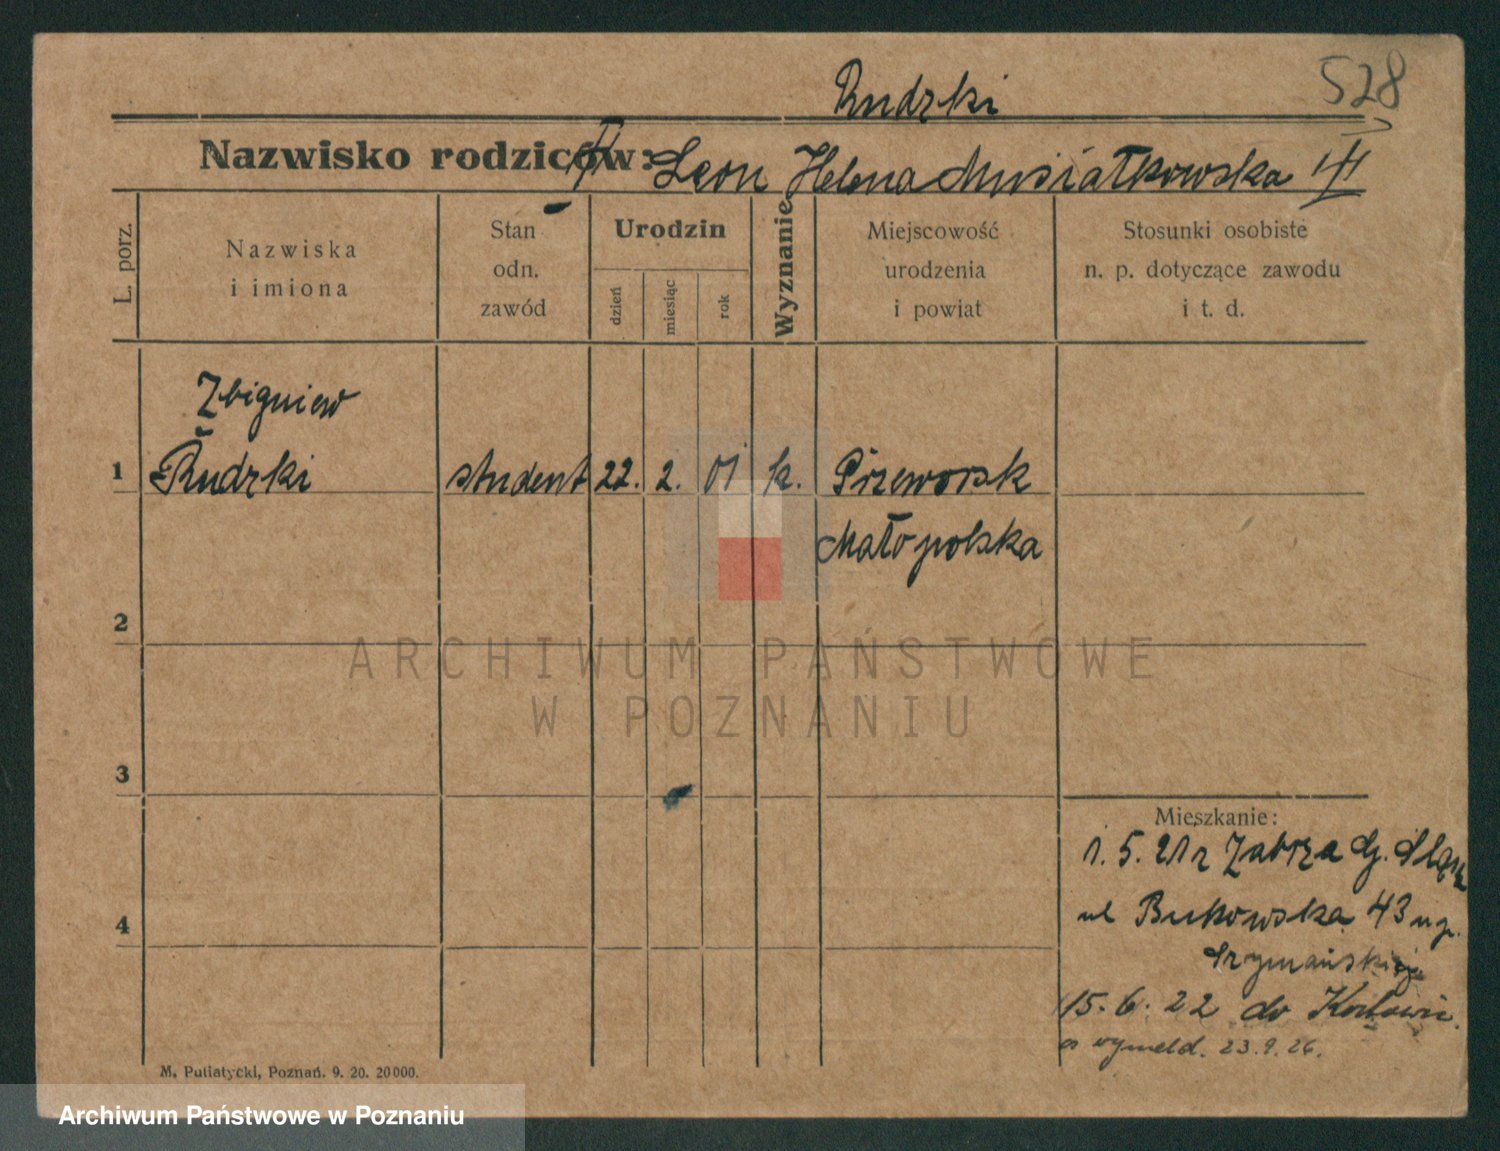 Rudzki
528
Nazwisko rodziców: Leon Helena Musiałkowska
L. porz.
Nazwiska i imiona
Stan odn. zawód
Urodzin
dzień
miesiąc
rok
Wyznanie
Miejscowość urodzenia i powiat
Stosunki osobiste n. p. dotyczące zawodu i t. d.
Zbigniew
1 Rudzki student 22. 2. 01 k. Przeworsk
Małopolska
2
ARCHIWUM PAŃSTWOWE
W POZNANIU
3
Mieszkanie:
1. 5. 21 r Zabrza G. Śląsk
ul Bukowska 43
4
Szymańskiej
15. 6. 22 do
wymeld. 23. 9. 26.
M. Putiatycki, Poznań. 9. 20. 20000.
Archiwum Państwowe w Poznaniu